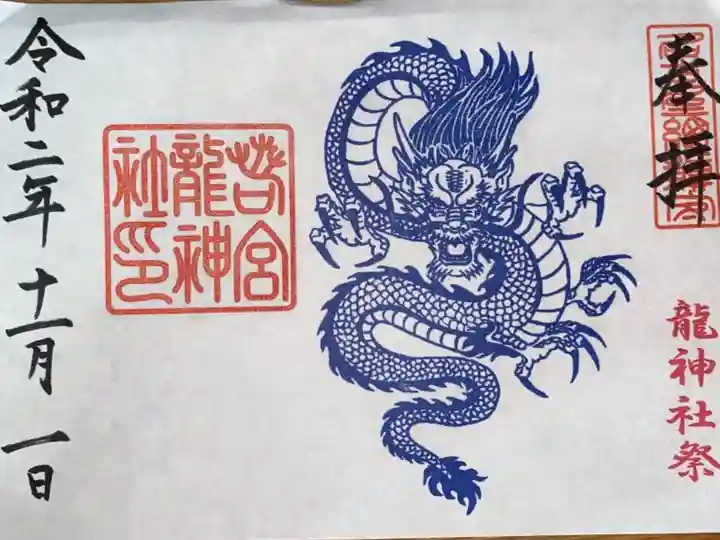 奉拝
龍神社祭
苔宮
龍神
社印
令和二年十一月一日